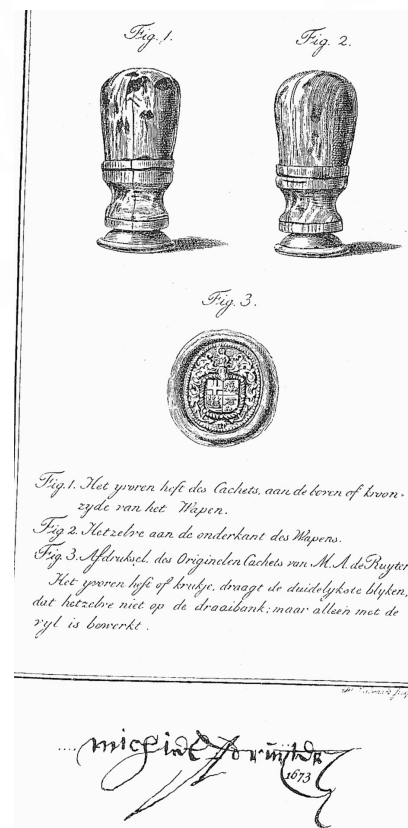 Fig. 1. Fig. 2.
Fig. 3.
Fig. 1. Het yvoren heft des Cachets, aan de boven of kroon-
zyde van het Wapen.
Fig. 2. Hetzelve aan de onderkant des Wapens.
Fig. 3. Afdruksel, des Origineelen Cachets van M. A. de Ruyter
Het yvoren heft of krukje, draagt de duidelykste blyken,
dat hetzelve niet op de draaibank; maar alleen met de
vyl is bewerkt.
1673